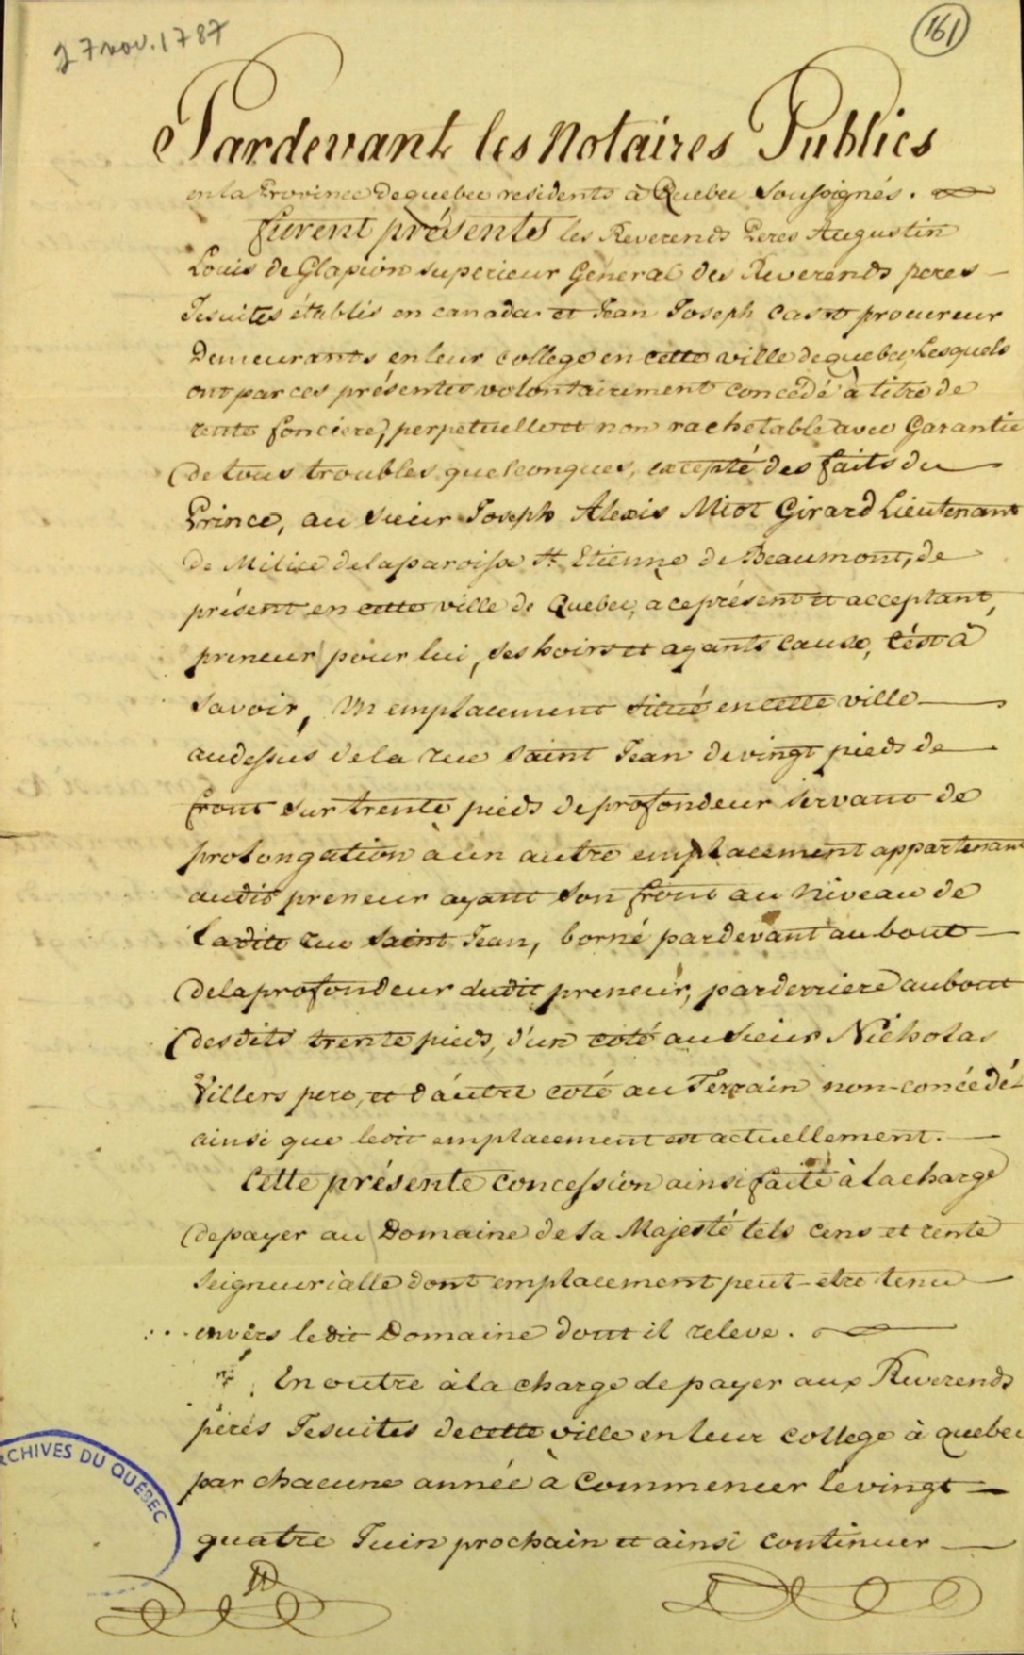 27 nov. 1787
161
Pardevant les Notaires Publics
en la Province de quebec residents à Quebec Soussignés.
furent présents les Reverends Peres Augustin
Louis de Glapion superieur Général des Reverends peres
Jesuites établis en canada et Jean Joseph Casot procureur
Demeurants en leur college en cette ville de quebec, Lesquels
ont par ces présentes volontairement concédé à titre de
rente fonciere, perpetuelle et non rachetable avec Garantie
de tous troubles quelconques, excepté des faits du
Prince, au sieur Joseph Alexis Miot Girard Lieutenant
de Milice de la paroisse St Etienne de Beaumont, de
présent en cette ville de Quebec, a ce présent et acceptant,
preneur pour lui, ses hoirs et ayants cause, C'ést à
Savoir, Un emplacement situé en cette ville
audessus de la rue Saint Jean de vingt pieds de
front sur trente pieds de profondeur servant de
prolongation à un autre emplacement appartenant
audit preneur ayant son front au Niveau de
ladite rue Saint Jean, borné pardevant au bout
de la profondeur dudit preneur, parderriere au bout
desdits trente pieds, d'un coté au sieur Nicholas
Villers pere, et d'autre coté au Terrain non-concédé
ainsi que ledit emplacement est actuellement.
Cette présente concession ainsi faite à la charge
de payer au Domaine de Sa Majesté tels cens et rente
Seigneurialle dont emplacement peut-etre tenu
envers ledit Domaine dont il releve.
En outre à la charge de payer aux Reverends
péres Jesuites de cette ville en leur college à quebec
par chacune année à Commencer le vingt
quatre Juin prochain et ainsi continuer
ARCHIVES DU QUÉBEC